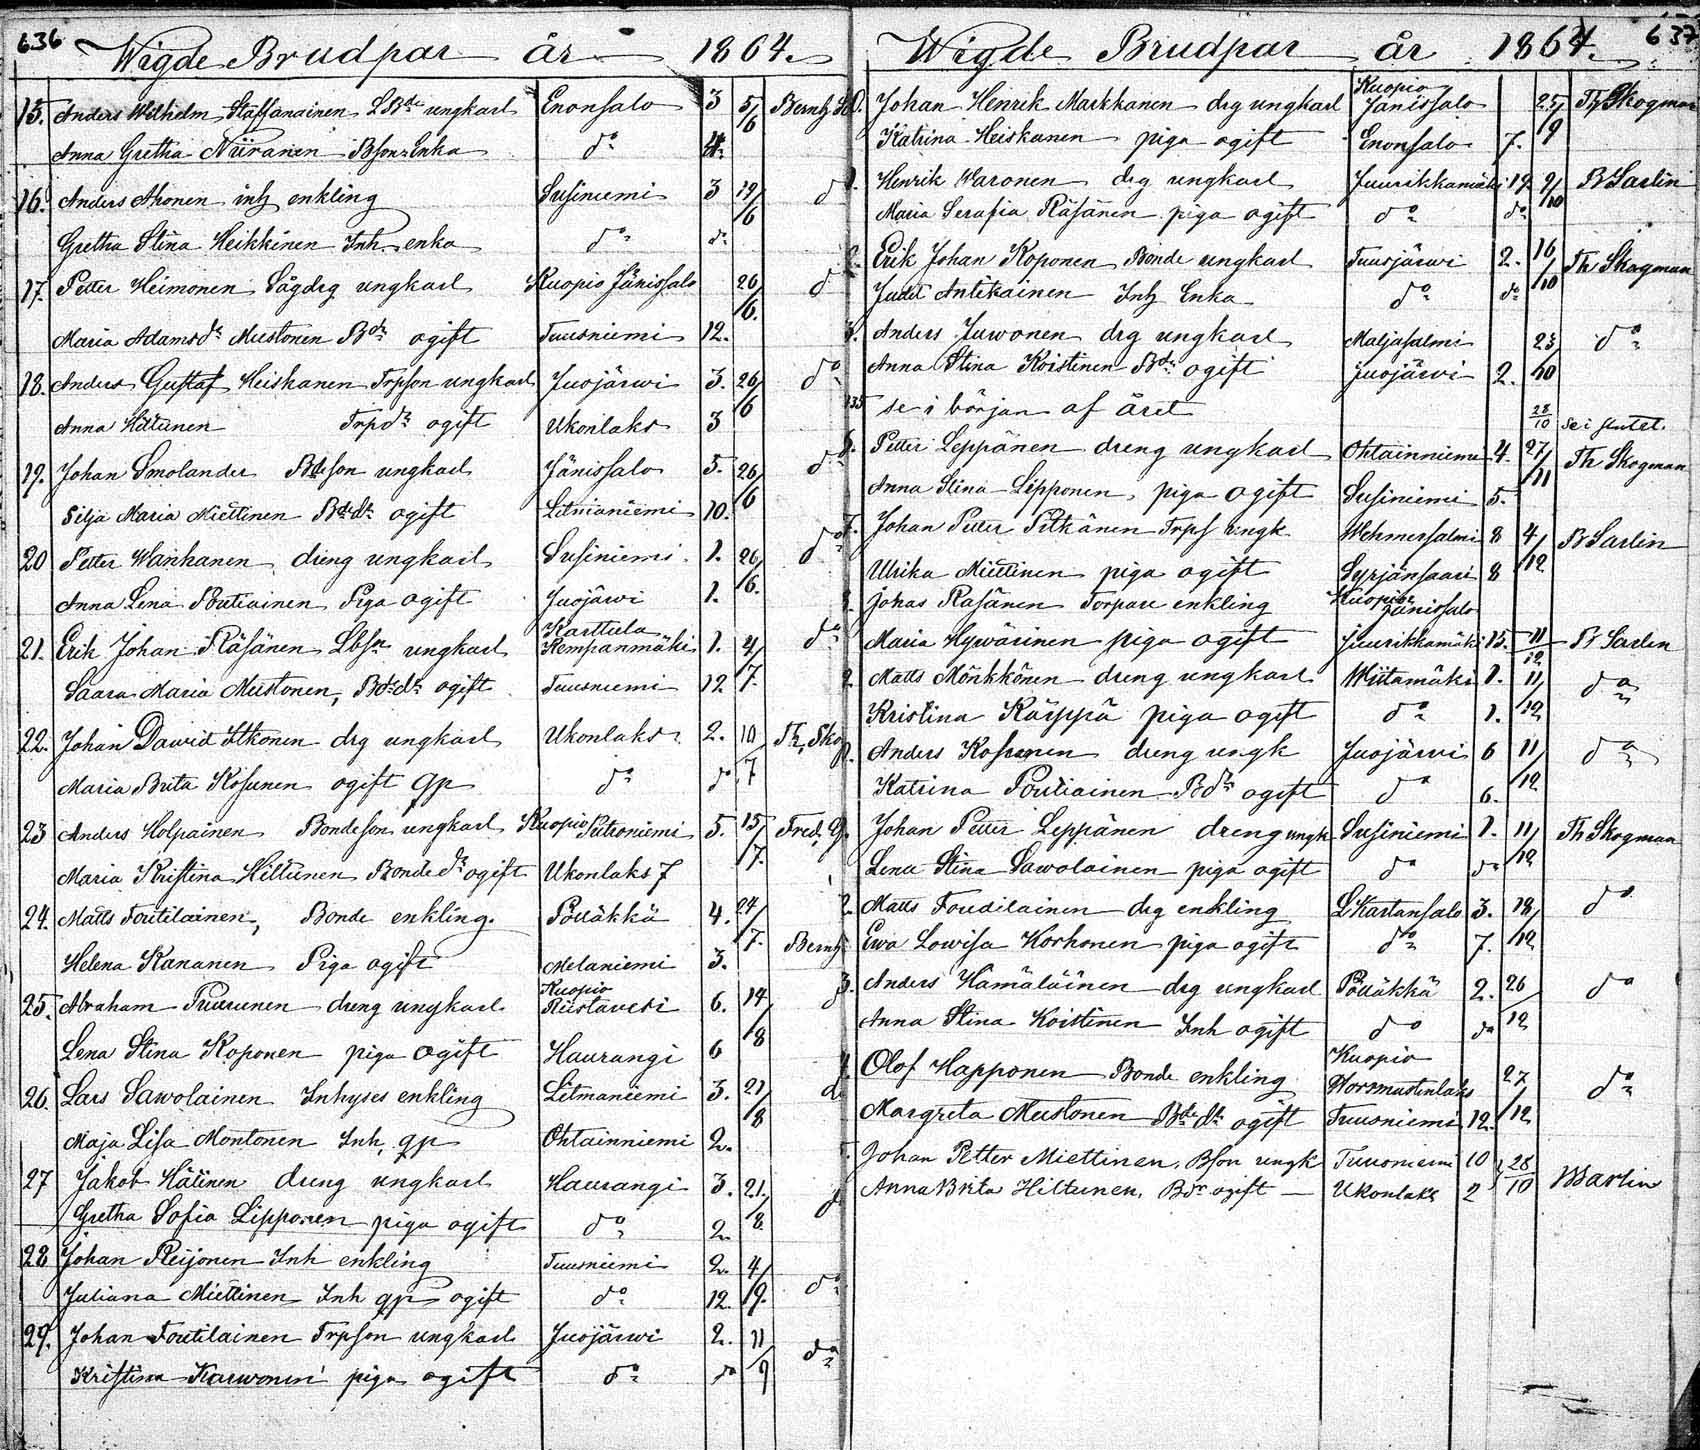 636
Wigde Brudpar år 1864.
15. Anders Wilhelm Staffanainen LBde ungkarl Enonsalo 3 5/6 Berntz
Anna Gretha Niiranen Bson Enka do 4.
16. Anders Ahonen inh enkling Susiniemi 3 19/6 do
Gretha Stina Heikkinen Inh. enka do do
17. Petter Heimonen Sågdrg ungkarl Kuopio Jänissalo 26/6. do
Maria Adamsdr Mustonen Bdr ogift Tuusniemi 12.
18. Anders Gustaf Heiskanen Trpson ungkarl Juojärwi 3. 26/6 do
Anna Hiltunen Trpdr ogift Ukonlaks 3
19. Johan Smolander Bdeson ungkarl Jänissalo 5. 26/6 do
Silja Maria Miettinen Bdedr ogift Litmaniemi 10.
20 Petter Wanhanen dreng ungkarl Susiniemi 1. 26/6. do
Anna Lena Poutiainen Piga ogift Juojärwi 1.
21. Erik Johan Räsänen Lbsn ungkarl Karttula Kempanmäki 1. 4/7. do
Saara Maria Mustonen, Bdedr ogift Tuusniemi 12
22. Johan Dawid Itkonen drg ungkarl Ukonlaks 2. 10/7 Th. Sko
Maria Brita Kosunen ogift qp do do
23 Anders Holpainen Bondeson ungkarl Kuopio Petroniemi 5. 15/7. Fred. G.
Maria Kristina Hiltunen Bondedr ogift Ukonlaks 7
24. Matts Toutilainen, Bonde enkling. Pölläkkä 4. 24/7. Berntz
Helena Kananen Piga ogift Melaniemi 3.
25. Abraham Tuurunen dreng ungkarl Kuopio Riistavesi 6. 14/8 do
Lena Stina Koponen piga ogift Haurangi 6
26. Lars Sawolainen Inhyses enkling Litmaniemi 3. 21/8 do
Maja Lisa Montonen Inh, qp Ohtainniemi 2.
27 Jakob Hätinen dreng ungkarl Haurangi 3. 21/8. do
Gretha Sofia Lipponen piga ogift do 2.
28 Johan Reijonen Inh enkling Tuusniemi 2. 4/9. do
Juliana Miettinen Inh qp ogift do 12.
29. Johan Toutilainen Trpson ungkarl Juojärwi 2. 11/9 do
Kristina Karwonen piga ogift do do
637
Wigde Brudpar år 1864.
0. Johan Henrik Markkanen drg ungkarl Kuopio Jänissalo 25/9 Th Skogman
Katrina Heiskanen piga ogift Enonsalo 7.
1. Henrik Waronen drg ungkarl Juurikkamäki 19. 2/10 B Sarlin
Maria Serafia Räsänen piga ogift do do
2. Erik Johan Koponen Bonde ungkarl Tuusjärwi 2. 16/10 Th Skogman
Judit Antikainen Inh Enka do do
3. Anders Juwonen drg ungkarl Maljasalmi 23/10 do
Anna Stina Koistinen Bdr ogift Juojärwi 2.
135 se i början af året 28/10 se i slutet.
6. Petter Leppänen dreng ungkarl Ohtainniemi 4. 27/11 Th Skogman
Anna Stina Lipponen, piga ogift Susiniemi 5.
7. Johan Petter Pitkänen Trps ungk. Wehmersalmi 8 4/12 B Sarlin
Ulrika Miettinen piga ogift Syrjänsaari 8
8. Johas Räsänen Torpare enkling Kuopio Jänissalo
Maria Hywärinen piga ogift Juurikkamäki 15. 11/12 B Sarlin
9. Matts Mönkkönen dreng ungkarl Wiitamäki 1. 11/12 do
Kristina Käyppä piga ogift do 1.
0. Anders Kosunen dreng ungk Juojärwi 6 11/12 do
Katrina Poutiainen Bdr ogift do 6.
Johan Petter Leppänen dreng ungk Susiniemi 1. 11/12 Th Skogman
Lena Stina Sawolainen piga ogift do do
2. Matts Toudilainen drg enkling LKartansalo 3. 18/12 do
Ewa Lowisa Korhonen piga ogift do 7.
3. Anders Hämäläinen drg ungkarl Pölläkkä 2. 26/12 do
Anna Stina Koistinen Inh ogift do do
4. Olof Happonen Bonde enkling Kuopio Worsmustenlaks 27/12 do
Margreta Mustonen Bdedr ogift Tuusniemi 12.
5. Johan Petter Miettinen, Bson ungk Tuusniemi 10 28/10 BSarlin
Anna Brita Hiltunen, Bdr ogift — Ukonlaks 2